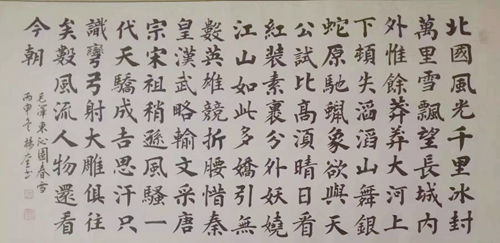 北國風光千里冰封
萬里雪飄望長城內
外惟餘莽莽大河上
下頓失滔滔山舞銀
蛇原馳蠟象欲與天
公試比高須晴日看
紅裝素裹分外妖嬈
江山如此多嬌引無
數英雄競折腰惜秦
皇漢武略輸文采唐
宗宋祖稍遜風騷一
代天驕成吉思汗只
識彎弓射大雕俱往
矣數風流人物還看
今朝
毛澤東沁園春雪
丙申冬